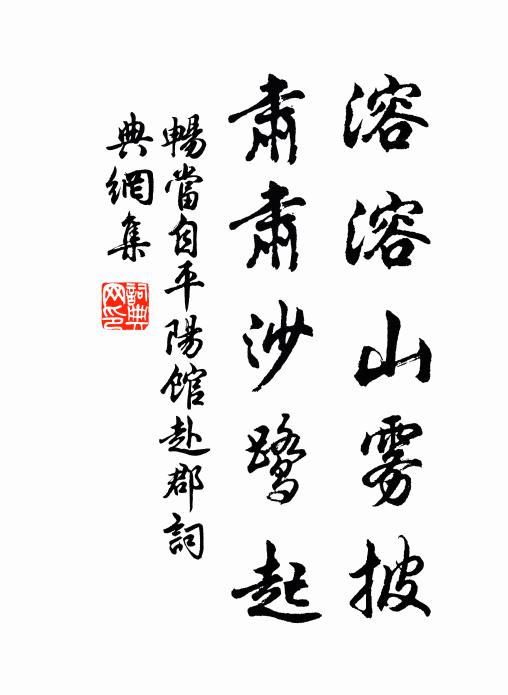 溶溶山雾披
肃肃沙鹭起
暢當自平陽館赴郡詞
典網集
詞典
网印